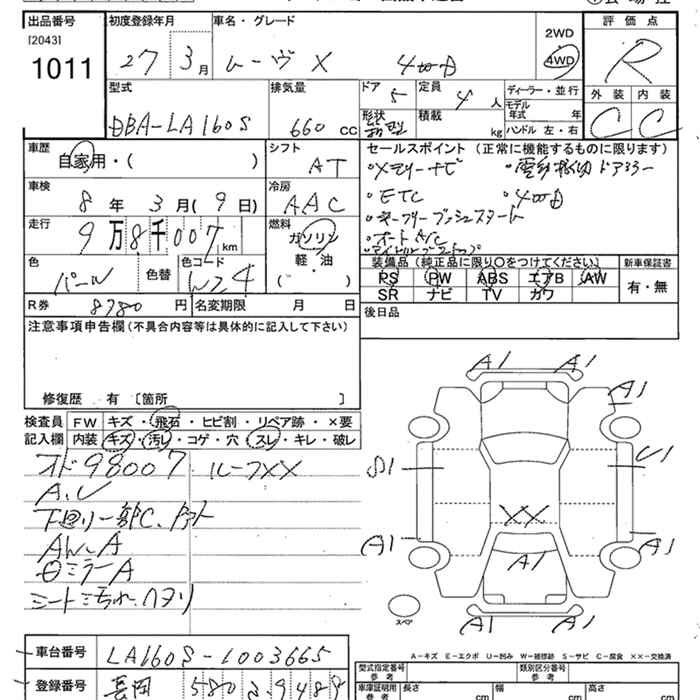 出品番号
[2043]
1011
初度登録年月
27 3月
車名・グレード
ムーヴ X 4WD
2WD
4WD
評価点
R
外装 内装
C C
型式
DBA-LA160S
排気量
660 cc
ドア
5
定員
4 人
形状
積載
kg
ディーラー・並行
モデル年式 年
ハンドル 左・右
車歴
自家用・( )
シフト
AT
セールスポイント (正常に機能するものに限ります)
・メモリーナビ
・電動格納ドアミラー
・ETC
・4WD
・キーフリープッシュスタート
・オートA/C
車検
8年 3月(9日)
冷房
AAC
走行
9万8千007km
燃料
ガソリン
軽・油
( )
色
パール
色替
色コード
W24
装備品 (純正品に限り○をつけてください)
PS PW ABS エアB AW
SR ナビ TV カワ
新車保証書
有・無
R券 8780円
名変期限 月 日
後日品
注意事項申告欄(不具合内容等は具体的に記入して下さい)
修復歴 有 〔箇所 〕
検査員記入欄
FW キズ・飛石・ヒビ割・リペア跡・×要
内装 キズ・汚レ・コゲ・穴・スレ・キレ・破レ
オド98007 ルーフXX
A.U
下回り一部C、
AW-A
ミラーA
シート汚れ、ヘタリ
A1 A1
A1
S1
U1
XX
A1
A1
A1
A1 A1
スペア
A-キズ E-エクボ U-凹み W-補修跡 S-サビ C-腐食 ××-交換済
車台番号
LA160S-1003665
登録番号
長岡 580
型式指定番号
参考
類別区分番号
参考
車庫証明用
参考
長さ cm
幅 cm
高さ cm